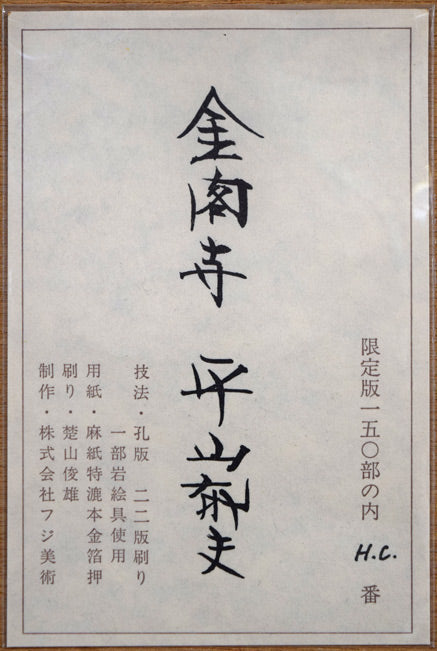 限定版一五〇部の内 H.C. 番
金閣寺 平山郁夫
技法・孔版 二二版刷り
一部岩絵具使用
用紙・麻紙特漉本金箔押
刷り・楚山俊雄
制作・株式会社フジ美術